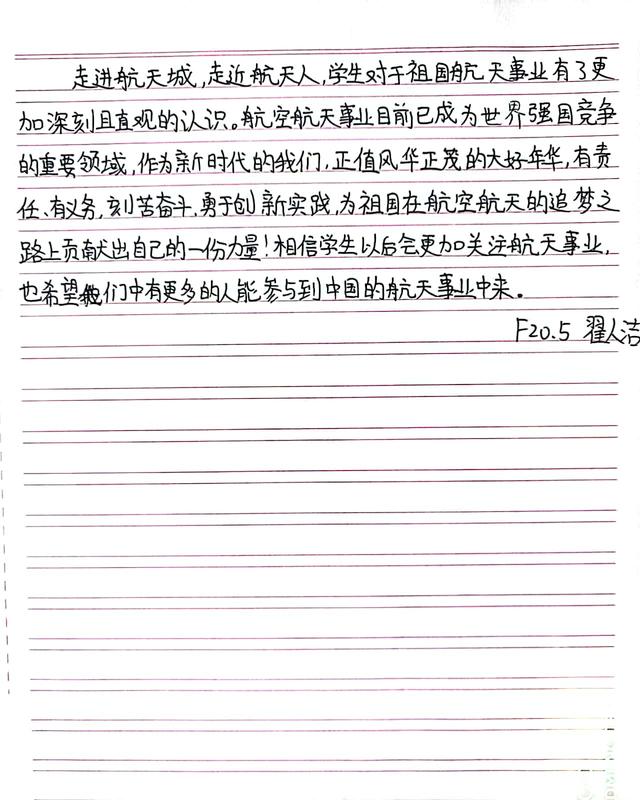 走进航天城,走近航天人,学生对于祖国航天事业有了更
加深刻且直观的认识。航空航天事业目前已成为世界强国竞争
的重要领域,作为新时代的我们,正值风华正茂的大好年华,有责
任、有义务,刻苦奋斗,勇于创新实践,为祖国在航空航天的追梦之
路上贡献出自己的一份力量!相信学生以后会更加关注航天事业,
也希望我们中有更多的人能参与到中国的航天事业中来。
F20.5 翟人洁